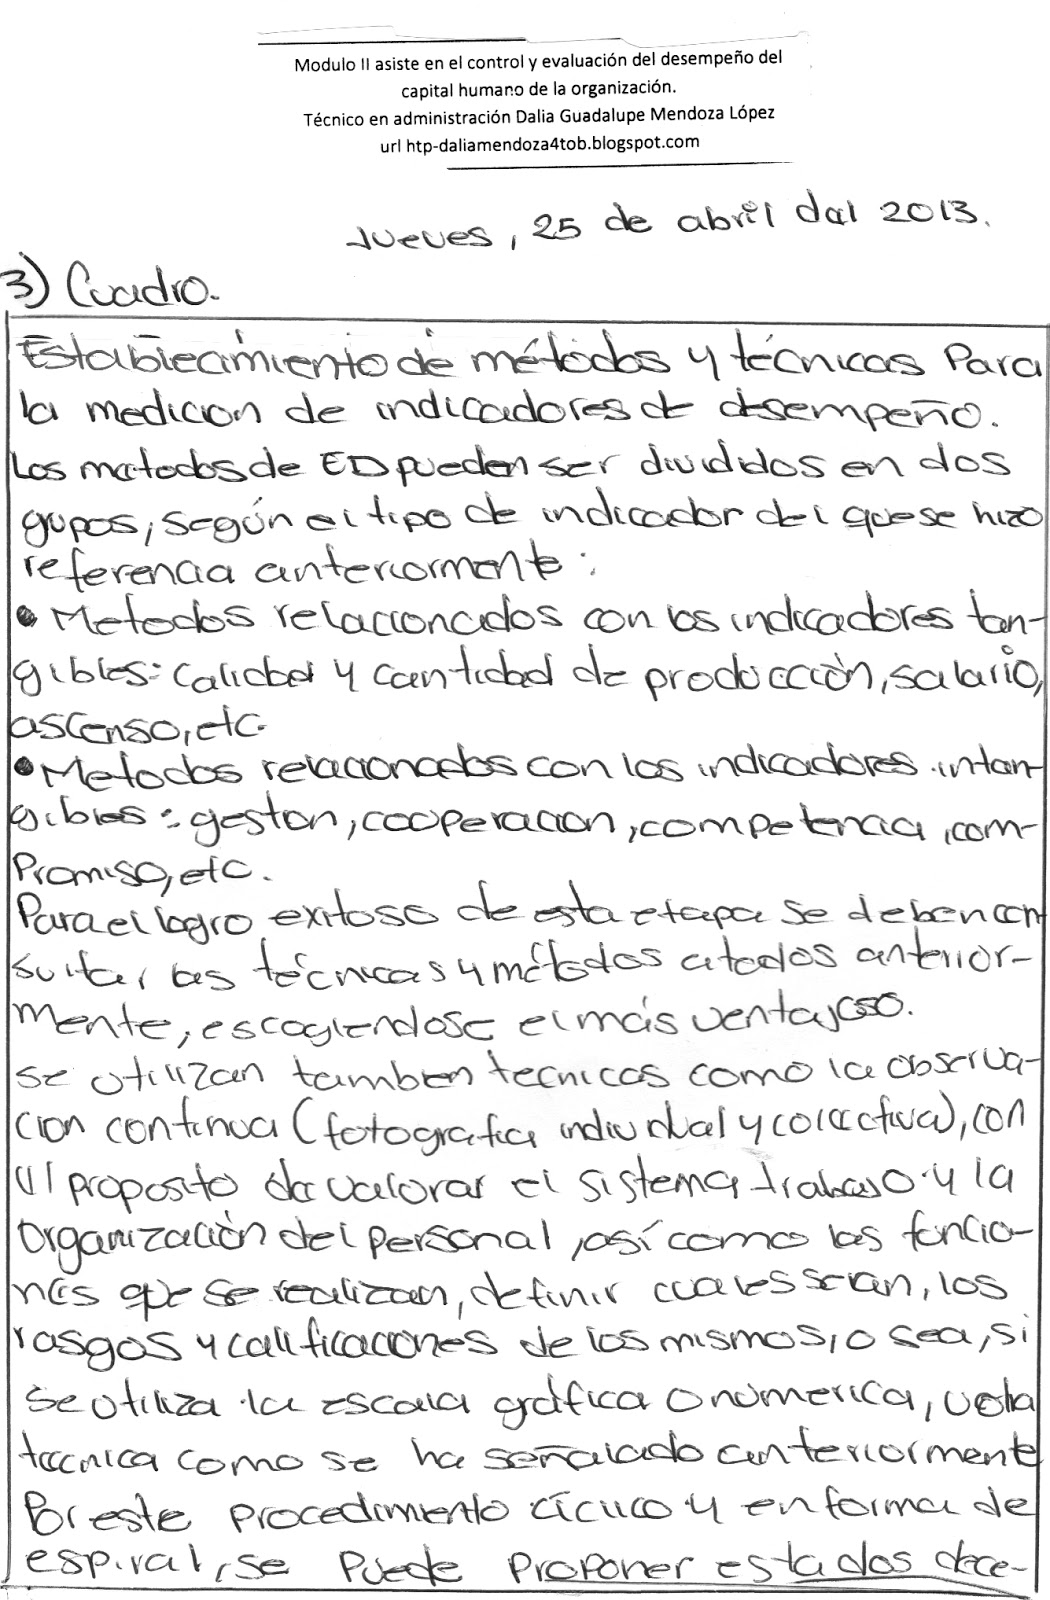 Modulo II asiste en el control y evaluación del desempeño del
capital humano de la organización.
Técnico en administración Dalia Guadalupe Mendoza López
url htp-daliamendoza4tob.blogspot.com
Jueves, 25 de abril dal 2013.
3) Cuadro.
Establecimiento de métodos y técnicas Para
la medicion de indicadores de desempeño.
Los metodos de ED pueden ser divididos en dos
gupos, según el tipo de indicador del que se hizo
referencia anteriormente:
• Metodos relacionados con los indicadores tan-
gibles: Calidad y cantidad de producción, salario,
ascenso, etc.
• Metodos relacionados con los indicadores intan-
gibles: gestion, cooperacion, competencia, com-
Promiso, etc.
Para el logro exitoso de esta etapa se deben con
sultar las técnicas y métodos citados anterior-
mente, escogiendose el más ventajoso.
se utilizan tambien tecnicas como la observa-
cion continua (fotografia individual y colectiva), con
el proposito de valorar el sistema trabajo y la
organización del personal, así como las funcio-
nes que se realizan, definir cuales seran, los
rasgos y calificaciones de los mismos, o sea, si
se utiliza la escala gráfica o numerica, u otra
tecnica como se ha señalado anteriormente
Por este procedimiento cícuco y en forma de
espiral, se Puede Proponer estados dece-